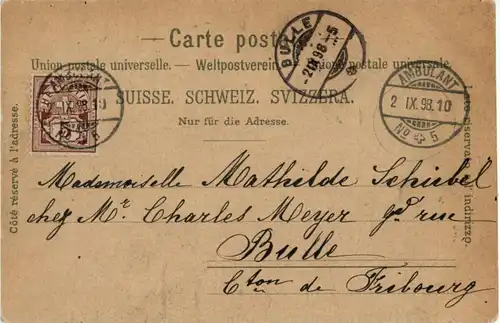 Carte posta
Union postale universelle. — Weltpostverein. — Unione postale universale.
SUISSE. SCHWEIZ. SVIZZERA.
Nur für die Adresse.
Côté réservé à l'adresse.
BULLE
2 IX 98
AMBULANT
2 IX. 98. 10
No 5
AMBULANT
2 IX. 98. 10
No 5
Mademoiselle Mathilde Schibel
chez Mr Charles Meyer gd rue
Bulle
Cton de Fribourg
lato riservato all' indirizzo.